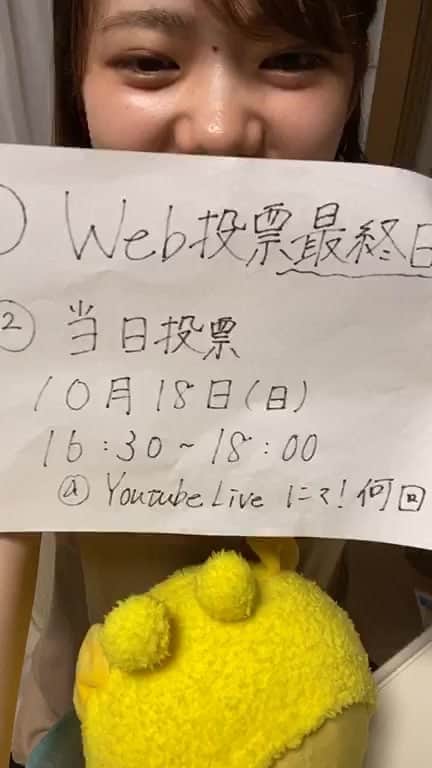 ) Web投票最終日
② 当日投票
10月18日(日)
16:30~18:00
@ YoutubeLive にて!何回